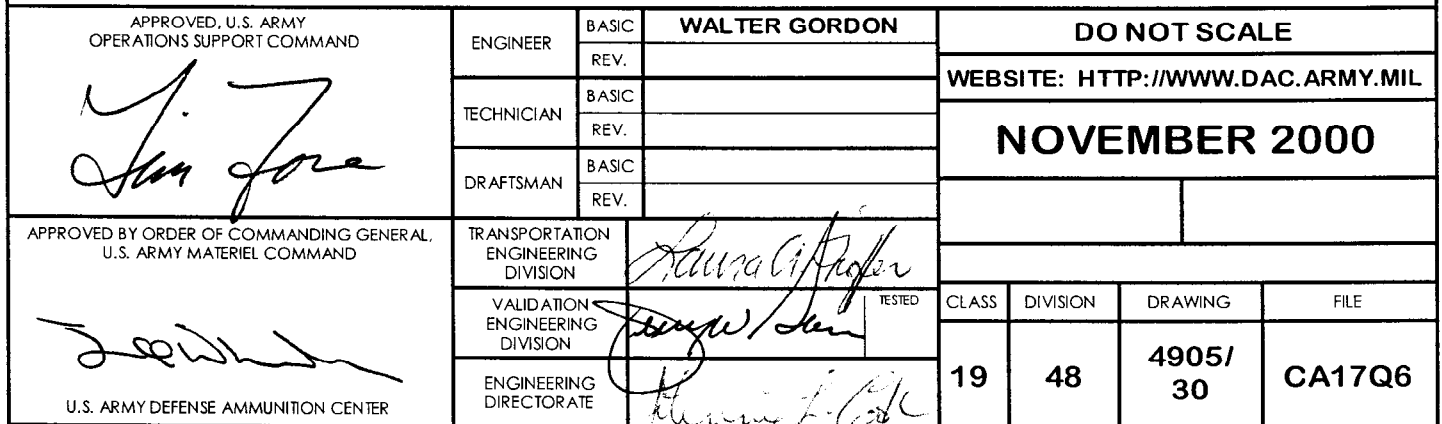 APPROVED, U.S. ARMY
OPERATIONS SUPPORT COMMAND
APPROVED BY ORDER OF COMMANDING GENERAL,
U.S. ARMY MATERIEL COMMAND
U.S. ARMY DEFENSE AMMUNITION CENTER
ENGINEER
BASIC
WALTER GORDON
REV.
TECHNICIAN
BASIC
REV.
DRAFTSMAN
BASIC
REV.
TRANSPORTATION
ENGINEERING
DIVISION
Laura A.
VALIDATION
ENGINEERING
DIVISION
TESTED
ENGINEERING
DIRECTORATE
DO NOT SCALE
WEBSITE: HTTP://WWW.DAC.ARMY.MIL
NOVEMBER 2000
CLASS DIVISION DRAWING FILE
19 48 4905/ CA17Q6
30